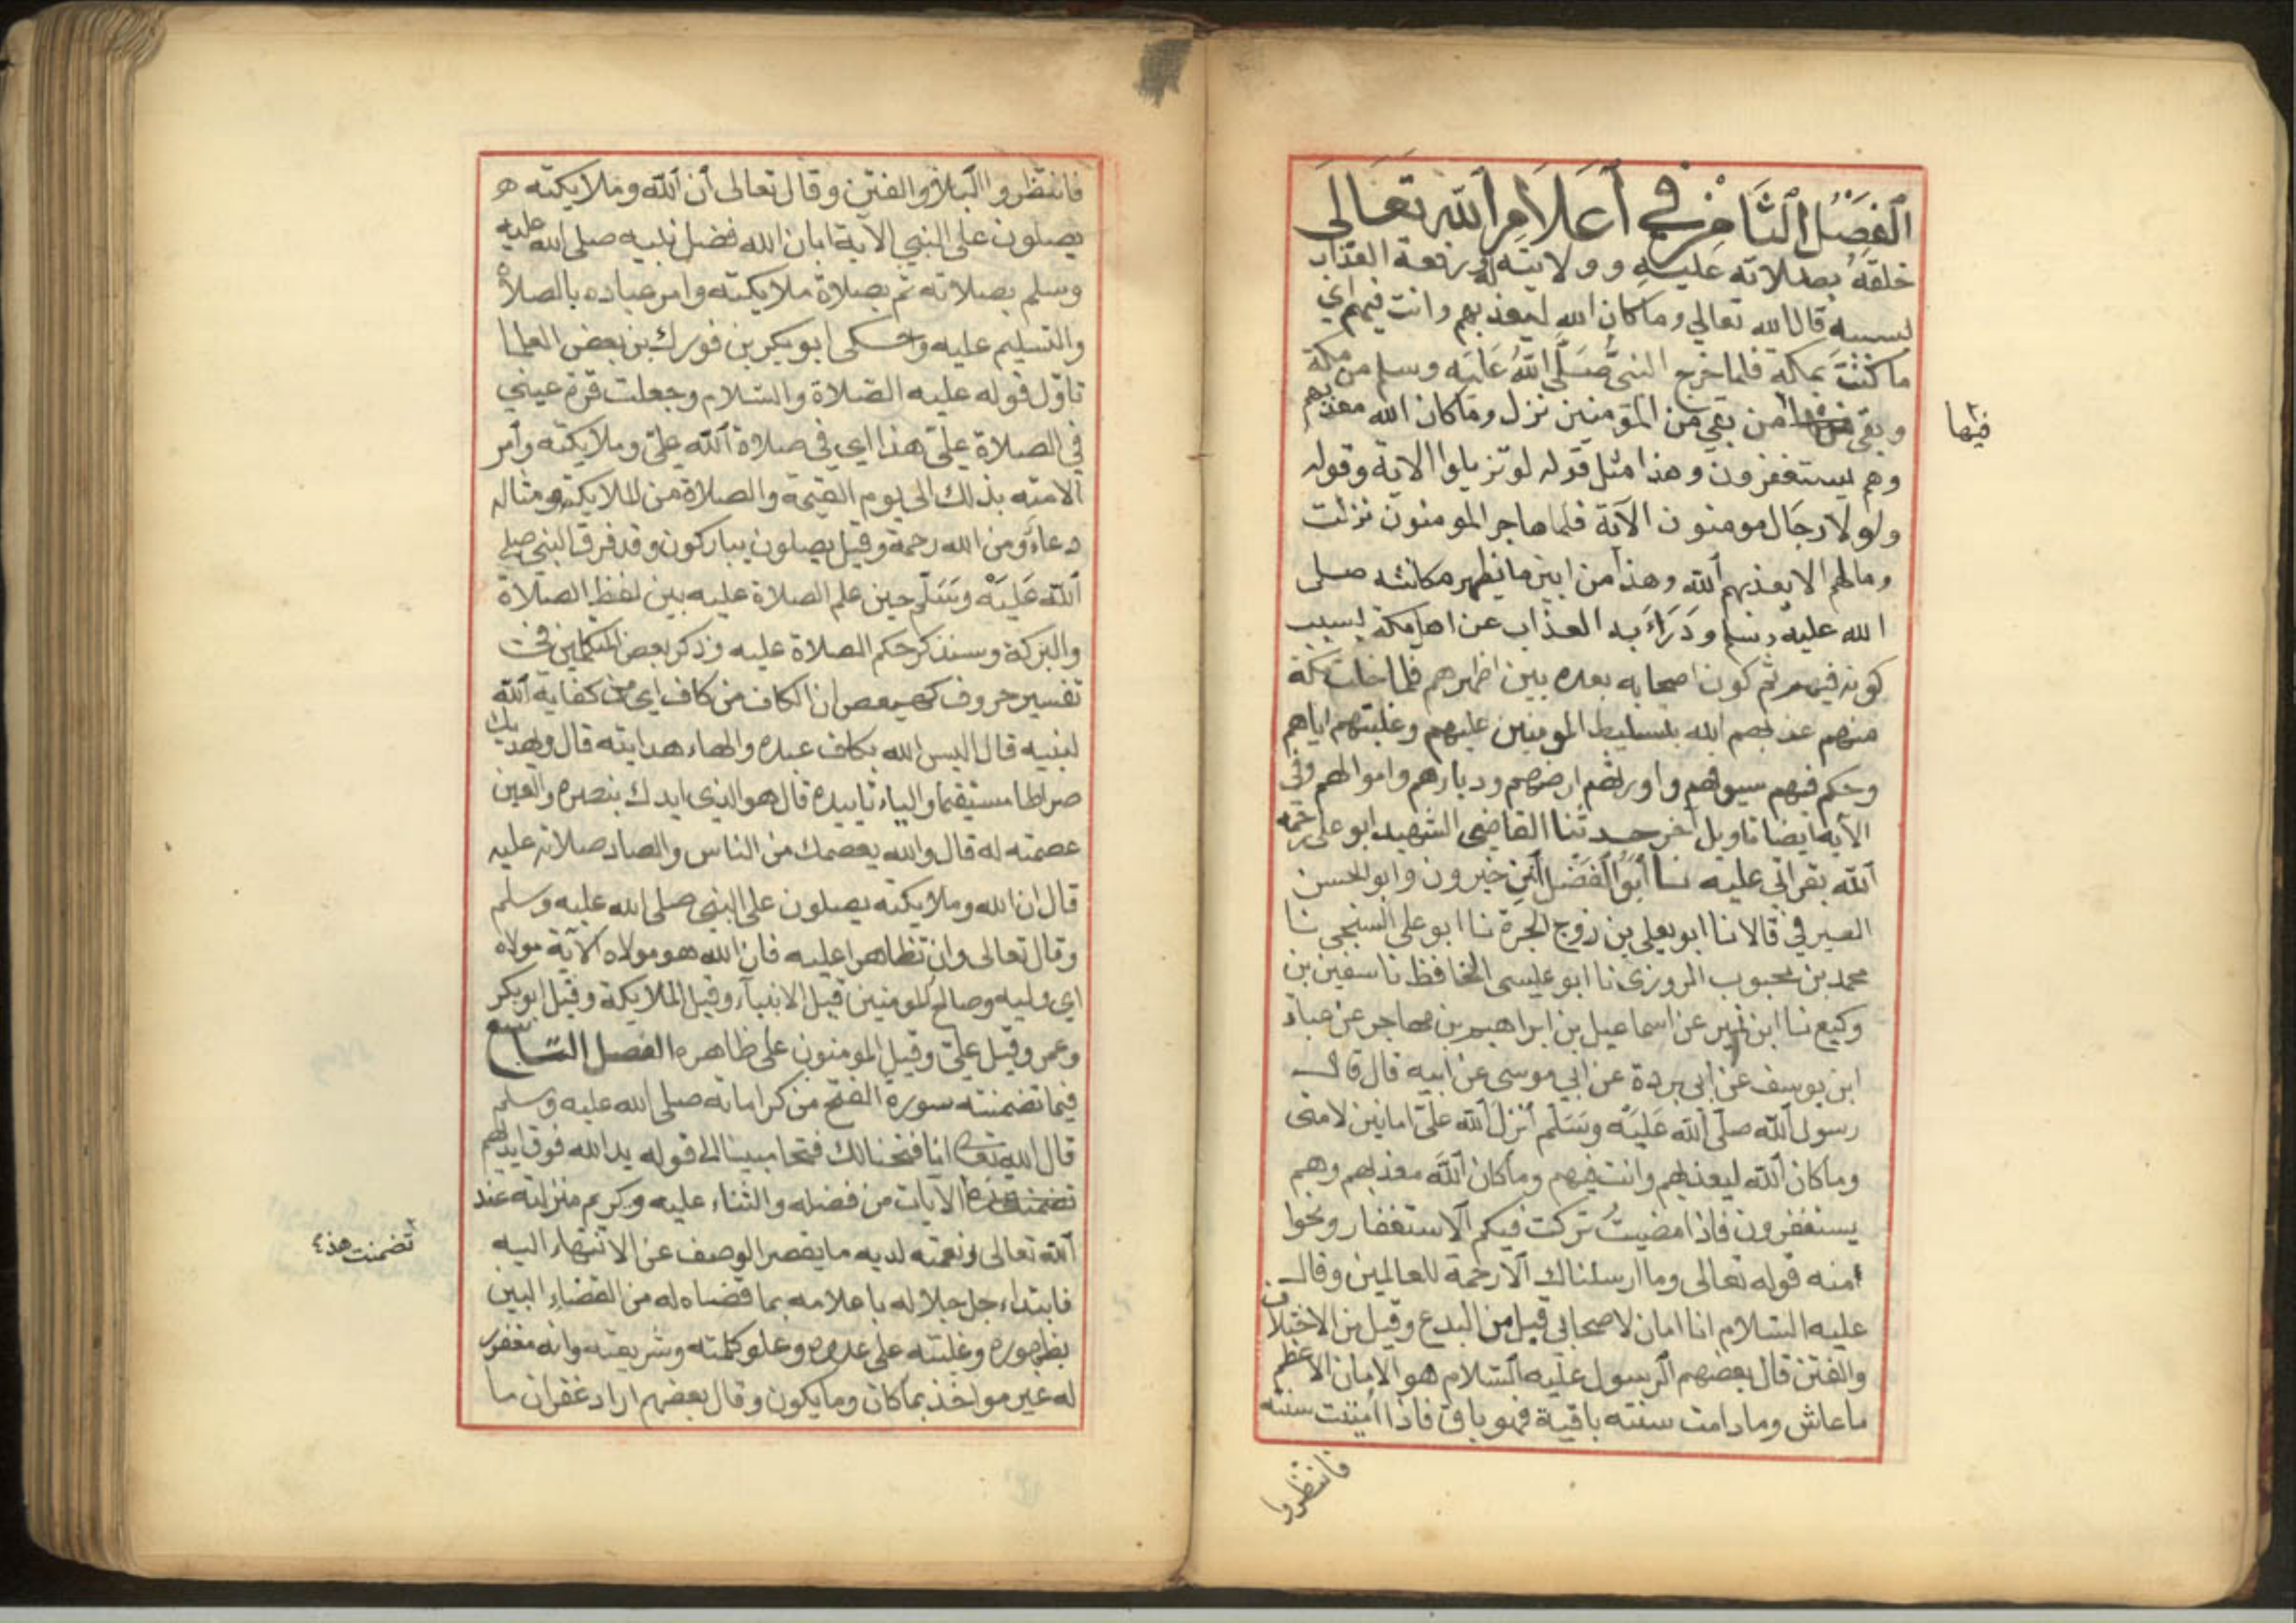 الفصل الثامن في أعلام الله تعالى
خلقه بصلاته عليه وولايته له ورفعه العذاب
بسببه قال الله تعالى وما كان الله ليعذبهم وانت فيهم اي
ما كنت بمكة فلما خرج النبي صلى الله عليه وسلم من مكة
وبقي من بقي من المؤمنين نزل وما كان الله معذبهم
فيها
وهم يستغفرون وهذا مثل قوله لو تزيلوا الاية وقوله
ولولا رجال مومنون الآية فلما هاجر المومنون نزلت
ومالهم الا يعذبهم الله وهذا من ابين ما يظهر مكانته صلى
الله عليه وسلم ودرأ به العذاب عن اهل مكة بسبب
كونه فيهم ثم كون اصحابه بعده بين اظهرهم فلما خلت مكة
منهم عذبهم الله بتسليط المومنين عليهم وغلبتهم اياهم
وحكم فيهم سيوفهم واورثهم ارضهم وديارهم واموالهم وفي
الآية ايضا تاويل آخر حدثنا القاضي الشهيد ابو علي رحمه
الله بقراتي عليه نا أبو الفضل ابن خيرون وابو الحسن
الصيرفي قالا نا ابو يعلي بن زوج الحرة نا ابو علي السنجي نا
محمد بن محبوب المروزي نا ابو عيسى الحافظ نا سفين بن
وكيع نا ابن نمير عن اسماعيل بن ابراهيم بن مهاجر عن عباد
ابن يوسف عن ابي بردة عن ابي موسى عن ابيه قال قال
رسول الله صلى الله عليه وسلم أنزل الله علي امانين لامتى
وما كان الله ليعذبهم وانت فيهم وما كان الله معذبهم وهم
يستغفرون فاذا مضيت تركت فيكم الاستغفار ونحوا
منه قوله تعالى وما ارسلناك الا رحمة للعالمين وقال
عليه السلام انا امان لاصحابي قيل من البدع وقيل من الاختلاف
والفتن قال بعضهم الرسول عليه السلام هو الامان الاعظم
ما عاش وما دامت سنته باقية فهو باق فاذا اميتت سنته
فانتظروا
فانتظروا البلاء والفتن وقال تعالى أن الله وملايكته
يصلون على النبي الآية ابان الله فضل نبيه صلى الله عليه
وسلم بصلاته ثم بصلاة ملايكته وامر عباده بالصلاة
والتسليم عليه وحكى ابو بكر بن فورك بن بعض العلما
تاول قوله عليه الصلاة والسلام وجعلت قرة عيني
في الصلاة على هذا اي في صلاة الله علي وملايكته وأمر
الامته بذلك الى يوم القيمة والصلاة من الملايكة ومثاله
دعاء ومن الله رحمة وقيل يصلون يباركون وقد فرق النبي صلى
الله عليه وسلم حين علم الصلاة عليه بين لفظ الصلاة
والبركة وسنذكر حكم الصلاة عليه وذكر بعض المتكلمين في
تفسير حروف كهيعص ان الكاف من كاف اي من كفاية الله
لنبيه قال اليس الله بكاف عبده والهاء هدايته قال ويهديك
صراطا مستقيما والياء تاييده قال هو الذي ايدك بنصره والعين
عصمته له قال والله يعصمك من الناس والصاد صلاته عليه
قال ان الله وملايكته يصلون على النبي صلى الله عليه وسلم
وقال تعالى وان تظاهرا عليه فان الله هو مولاه الآية مولاه
اي وليه وصالح المومنين قيل الانبياء وقيل الملايكة وقيل ابو بكر
وعمر وقيل علي وقيل المومنون على ظاهره الفصل التاسع
فيما تضمنته سورة الفتح من كراماته صلى الله عليه وسلم
قال الله تعالى انا فتحنا لك فتحا مبينا الى قوله يد الله فوق ايديهم
تضمنت هذه الايات من فضله والثناء عليه وكريم منزلته عند
تضمنت هذه
الله تعالى ونعمته لديه ما يقصر الوصف عن الانتهاء اليه
فابتداء جل جلاله باعلامه بما قضاه له من القضاء البين
بظهوره وغلبته على عدوه وعلو كلمته وشريعته وانه مغفور
له غير مواخذ بما كان وما يكون وقال بعضهم اراد غفران ما